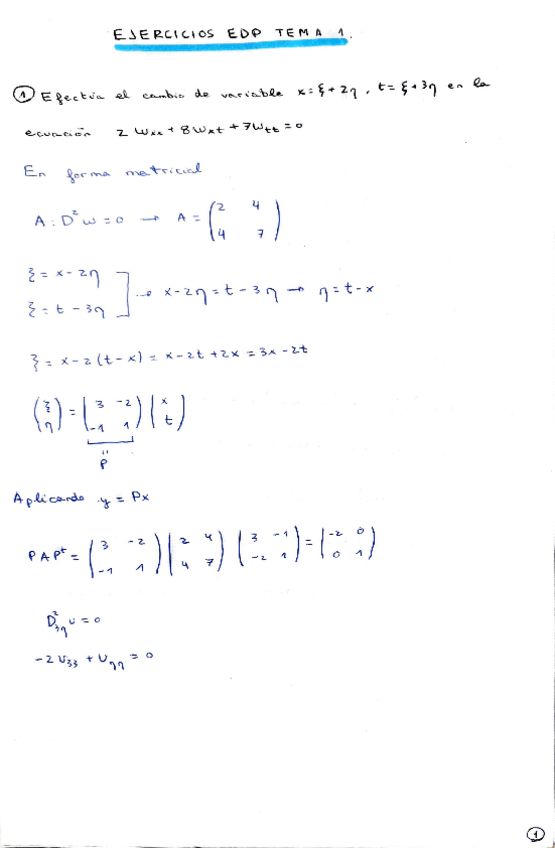 EJERCICIOS EDP TEMA 1.
① Efectúa el cambio de variable x = ξ + 2η, t = ξ + 3η en la
ecuación 2 Wxx + 8 Wxt + 7 Wtt = 0
En forma matricial
A : D²w = 0 → A = (2 4
4 7)
ξ = x - 2η
ξ = t - 3η ] → x - 2η = t - 3η → η = t - x
ξ = x - 2(t - x) = x - 2t + 2x = 3x - 2t
(ξ η) = (3 -2
-1 1) (x t)
P
Aplicando y = Px
PAPᵗ = (3 -2
-1 1) (2 4
4 7) (3 -1
-2 1) = (-2 0
0 1)
D²ξη u = 0
-2 Uξξ + Uηη = 0
①